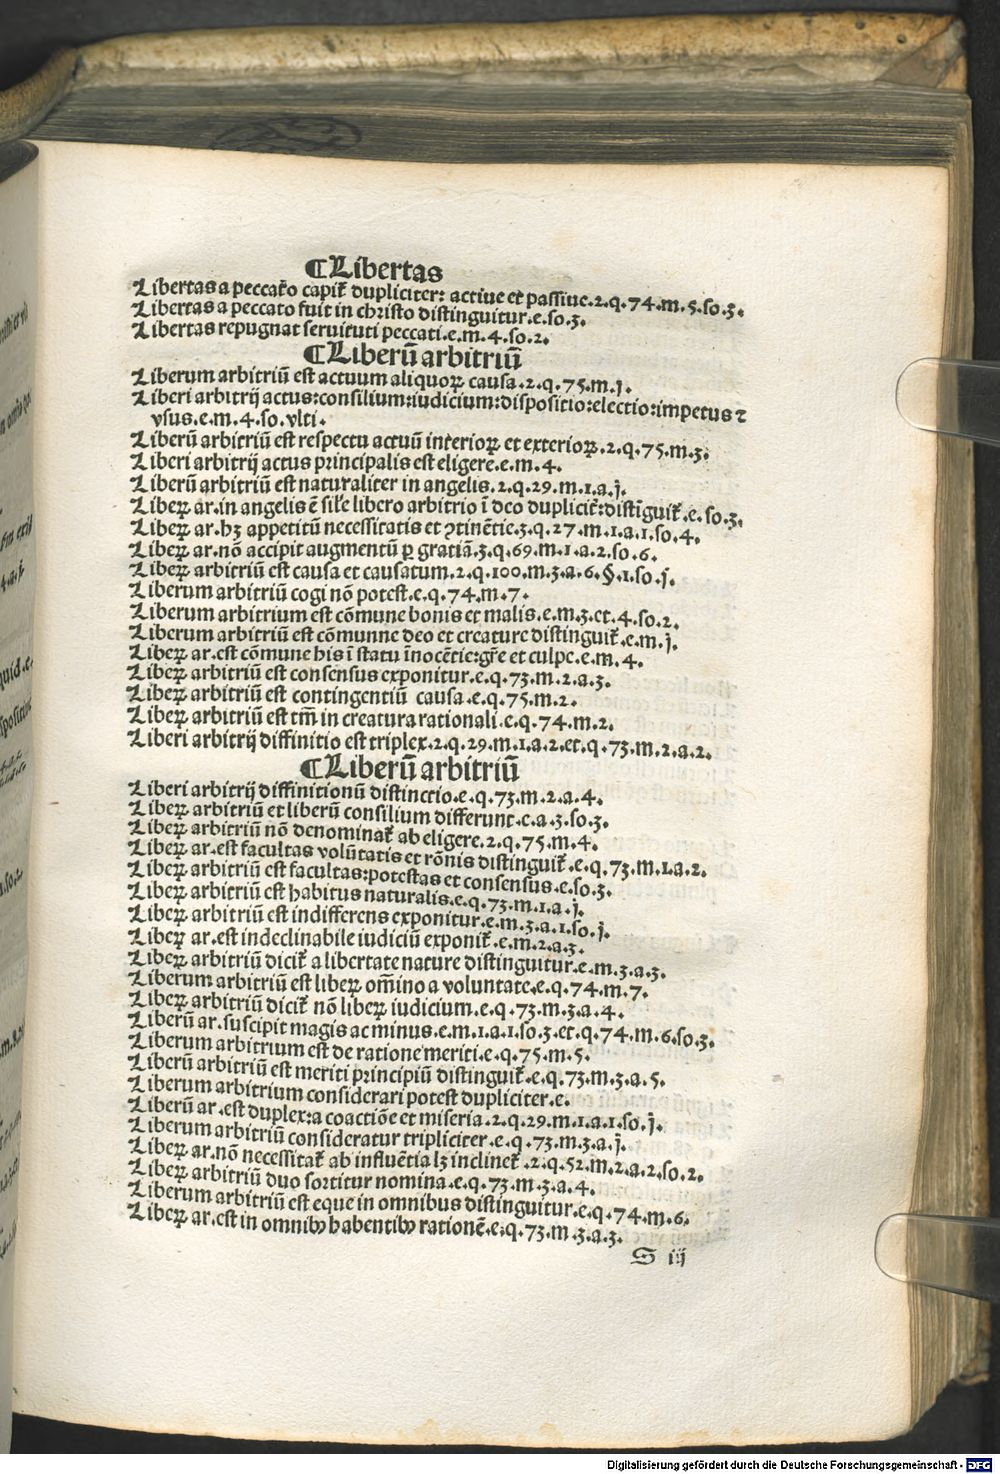 ¶Libertas
Libertas a peccato capit᷑ dupliciter: actiue et passiue.2.q.74.m.5.so.3.
Libertas a peccato fuit in christo distinguitur.e.so.3.
Libertas repugnat seruituti peccati.e.m.4.so.2.
¶Liberū arbitriū
Liberum arbitriū est actuum aliquoꝝ causa.2.q.75.m.j.
Liberi arbitrij actus:consilium:iudicium:dispositio:electio:impetus ⁊
vsus.e.m.4.so.vlti.
Liberū arbitriū est respectu actuū interioꝝ et exterioꝝ.2.q.75.m.3.
Liberi arbitrij actus principalis est eligere.e.m.4.
Liberū arbitriū est naturaliter in angelis.2.q.29.m.1.a.j.
Libeꝝ ar.in angelis ē sił'e libero arbitrio ī deo duplicit᷑:distīguit᷑.e.so.3.
Libeꝝ ar.hꝫ appetitū necessitatis et ꝯtinētie.3.q.27.m.1.a.1.so.4.
Libeꝝ ar.nō accipit augmentū ꝑ gratiā.3.q.69.m.1.a.2.so.6.
Libeꝝ arbitriū est causa et causatum.2.q.100.m.3.a.6.§.1.so.j.
Liberum arbitriū cogi nō potest.e.q.74.m.7.
Liberum arbitrium est cōmune bonis et malis.e.m.3.et.4.so.2.
Liberum arbitriū est cōmunne deo et creature distinguit᷑.e.m.j.
Libeꝝ ar.est cōmune his ī statu īnocētie:gr̄e et culpe.e.m.4.
Libeꝝ arbitriū est consensus exponitur.e.q.73.m.2.a.3.
Libeꝝ arbitriū est contingentiū causa.e.q.75.m.2.
Libeꝝ arbitriū est tm̄ in creatura rationali.e.q.74.m.2.
Liberi arbitrij diffinitio est triplex.2.q.29.m.1.a.2.et.q.73.m.2.a.2.
¶Liberū arbitriū
Liberi arbitrij diffinitionū distinctio.e.q.73.m.2.a.4.
Libeꝝ arbitriū et liberū consilium differunt.e.a.3.so.3.
Libeꝝ arbitriū nō denominat᷑ ab eligere.2.q.75.m.4.
Libeꝝ ar.est facultas volūtatis et rōnis distinguit᷑.e.q.73.m.1.a.2.
Libeꝝ arbitriū est facultas:potestas et consensus.e.so.3.
Libeꝝ arbitriū est habitus naturalis.e.q.73.m.1.a.j.
Libeꝝ arbitriū est indifferens exponitur.e.m.3.a.1.so.j.
Libeꝝ ar.est indeclinabile iudiciū exponit᷑.e.m.2.a.3.
Libeꝝ arbitriū dicit᷑ a libertate nature distinguitur.e.m.3.a.3.
Liberum arbitriū est libeꝝ om̄ino a voluntate.e.q.74.m.7.
Libeꝝ arbitriū dicit᷑ nō libeꝝ iudicium.e.q.73.m.3.a.4.
Liberū ar.suscipit magis ac minus.e.m.1.a.1.so.3.et.q.74.m.6.so.3.
Liberum arbitrium est de ratione meriti.e.q.75.m.5.
Liberū arbitriū est meriti principiū distinguit᷑.e.q.73.m.3.a.5.
Liberum arbitrium considerari potest dupliciter.e.
Liberū ar.est duplex:a coactiōe et miseria.2.q.29.m.1.a.1.so.j.
Liberum arbitriū consideratur tripliciter.e.q.73.m.3.a.j.
Libeꝝ ar.nō necessitat᷑ ab influētia lꝫ inclinet᷑.2.q.52.m.2.a.2.so.2.
Libeꝝ arbitriū duo sortitur nomina.e.q.73.m.3.a.4.
Liberum arbitriū est eque in omnibus distinguitur.e.q.74.m.6.
Libeꝝ ar.est in omnibꝰ habentibꝰ rationē.e.q.73.m.3.a.3.
S iij
Digitalisierung gefördert durch die Deutsche Forschungsgemeinschaft - DFG